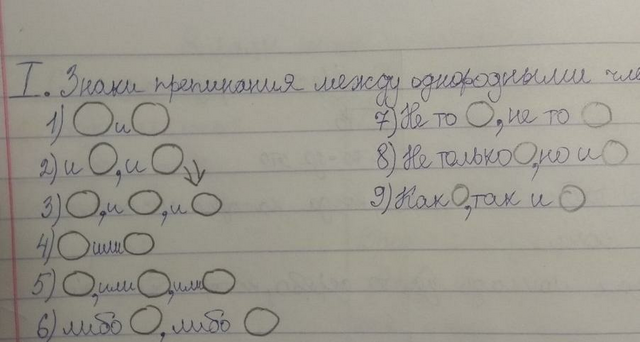 I. Знаки препинания между однородными чле
1) О и О
2) и О, и О
3) О, и О, и О
4) О или О
5) О, или О, или О
6) либо О, либо О
7) Не то О, не то О
8) Не только О, но и О
9) Как О, так и О